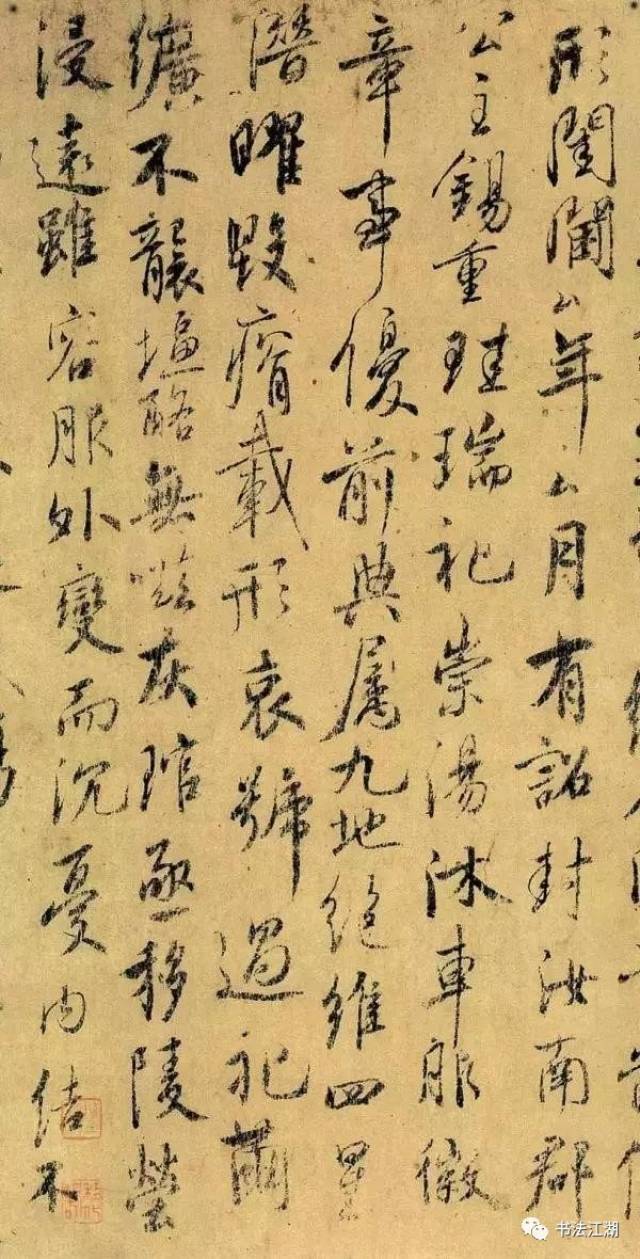 形閨閫厶年厶月有詔封汝南郡
公主錫重珪瑞祀崇湯沐車服徽
章事優前典屬九地絕維四星
潛曜毀瘠載形哀號過祀繭
纊不襲塩酪無嗞灰琯亟移陵塋
浸遠雖容服外變而沉憂內結不
书法江湖